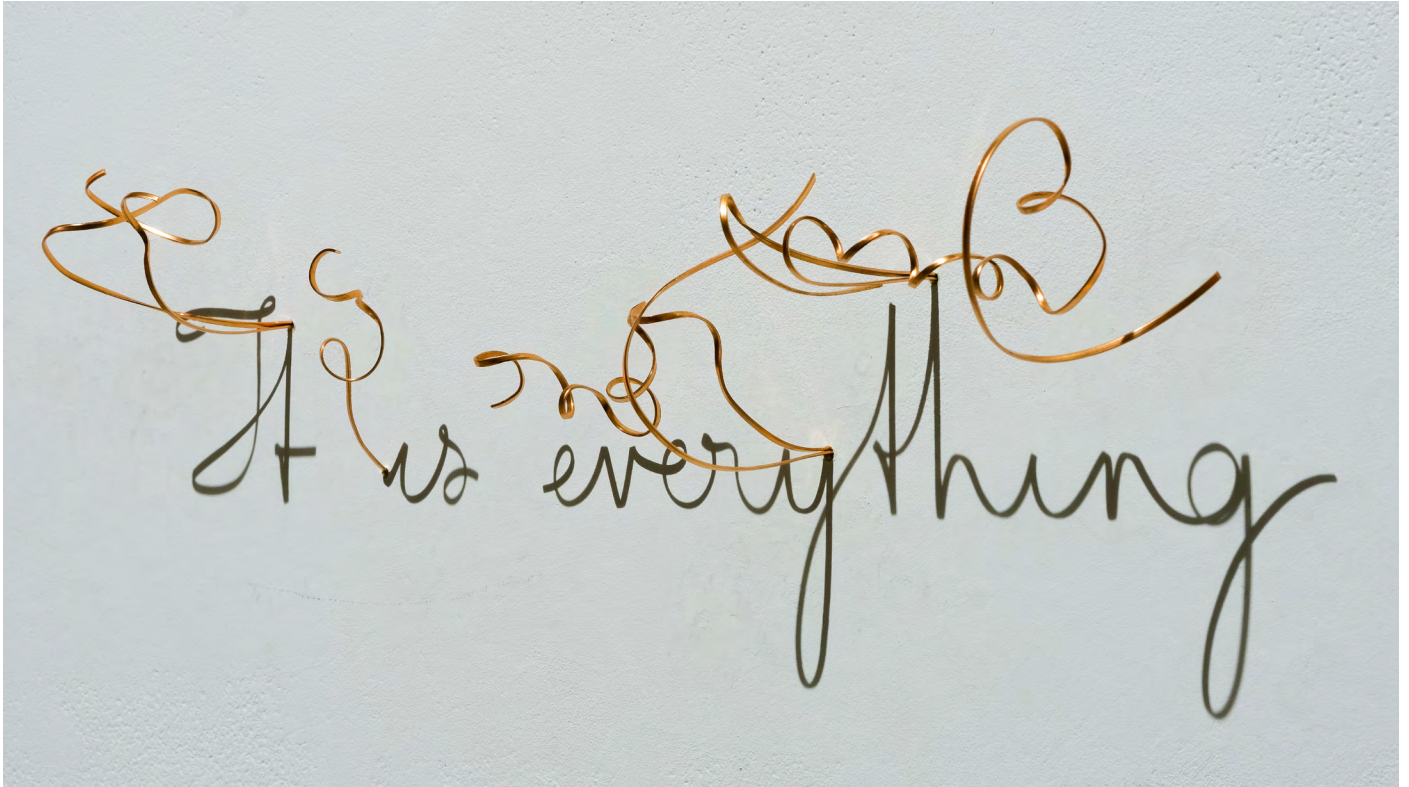 It is everything